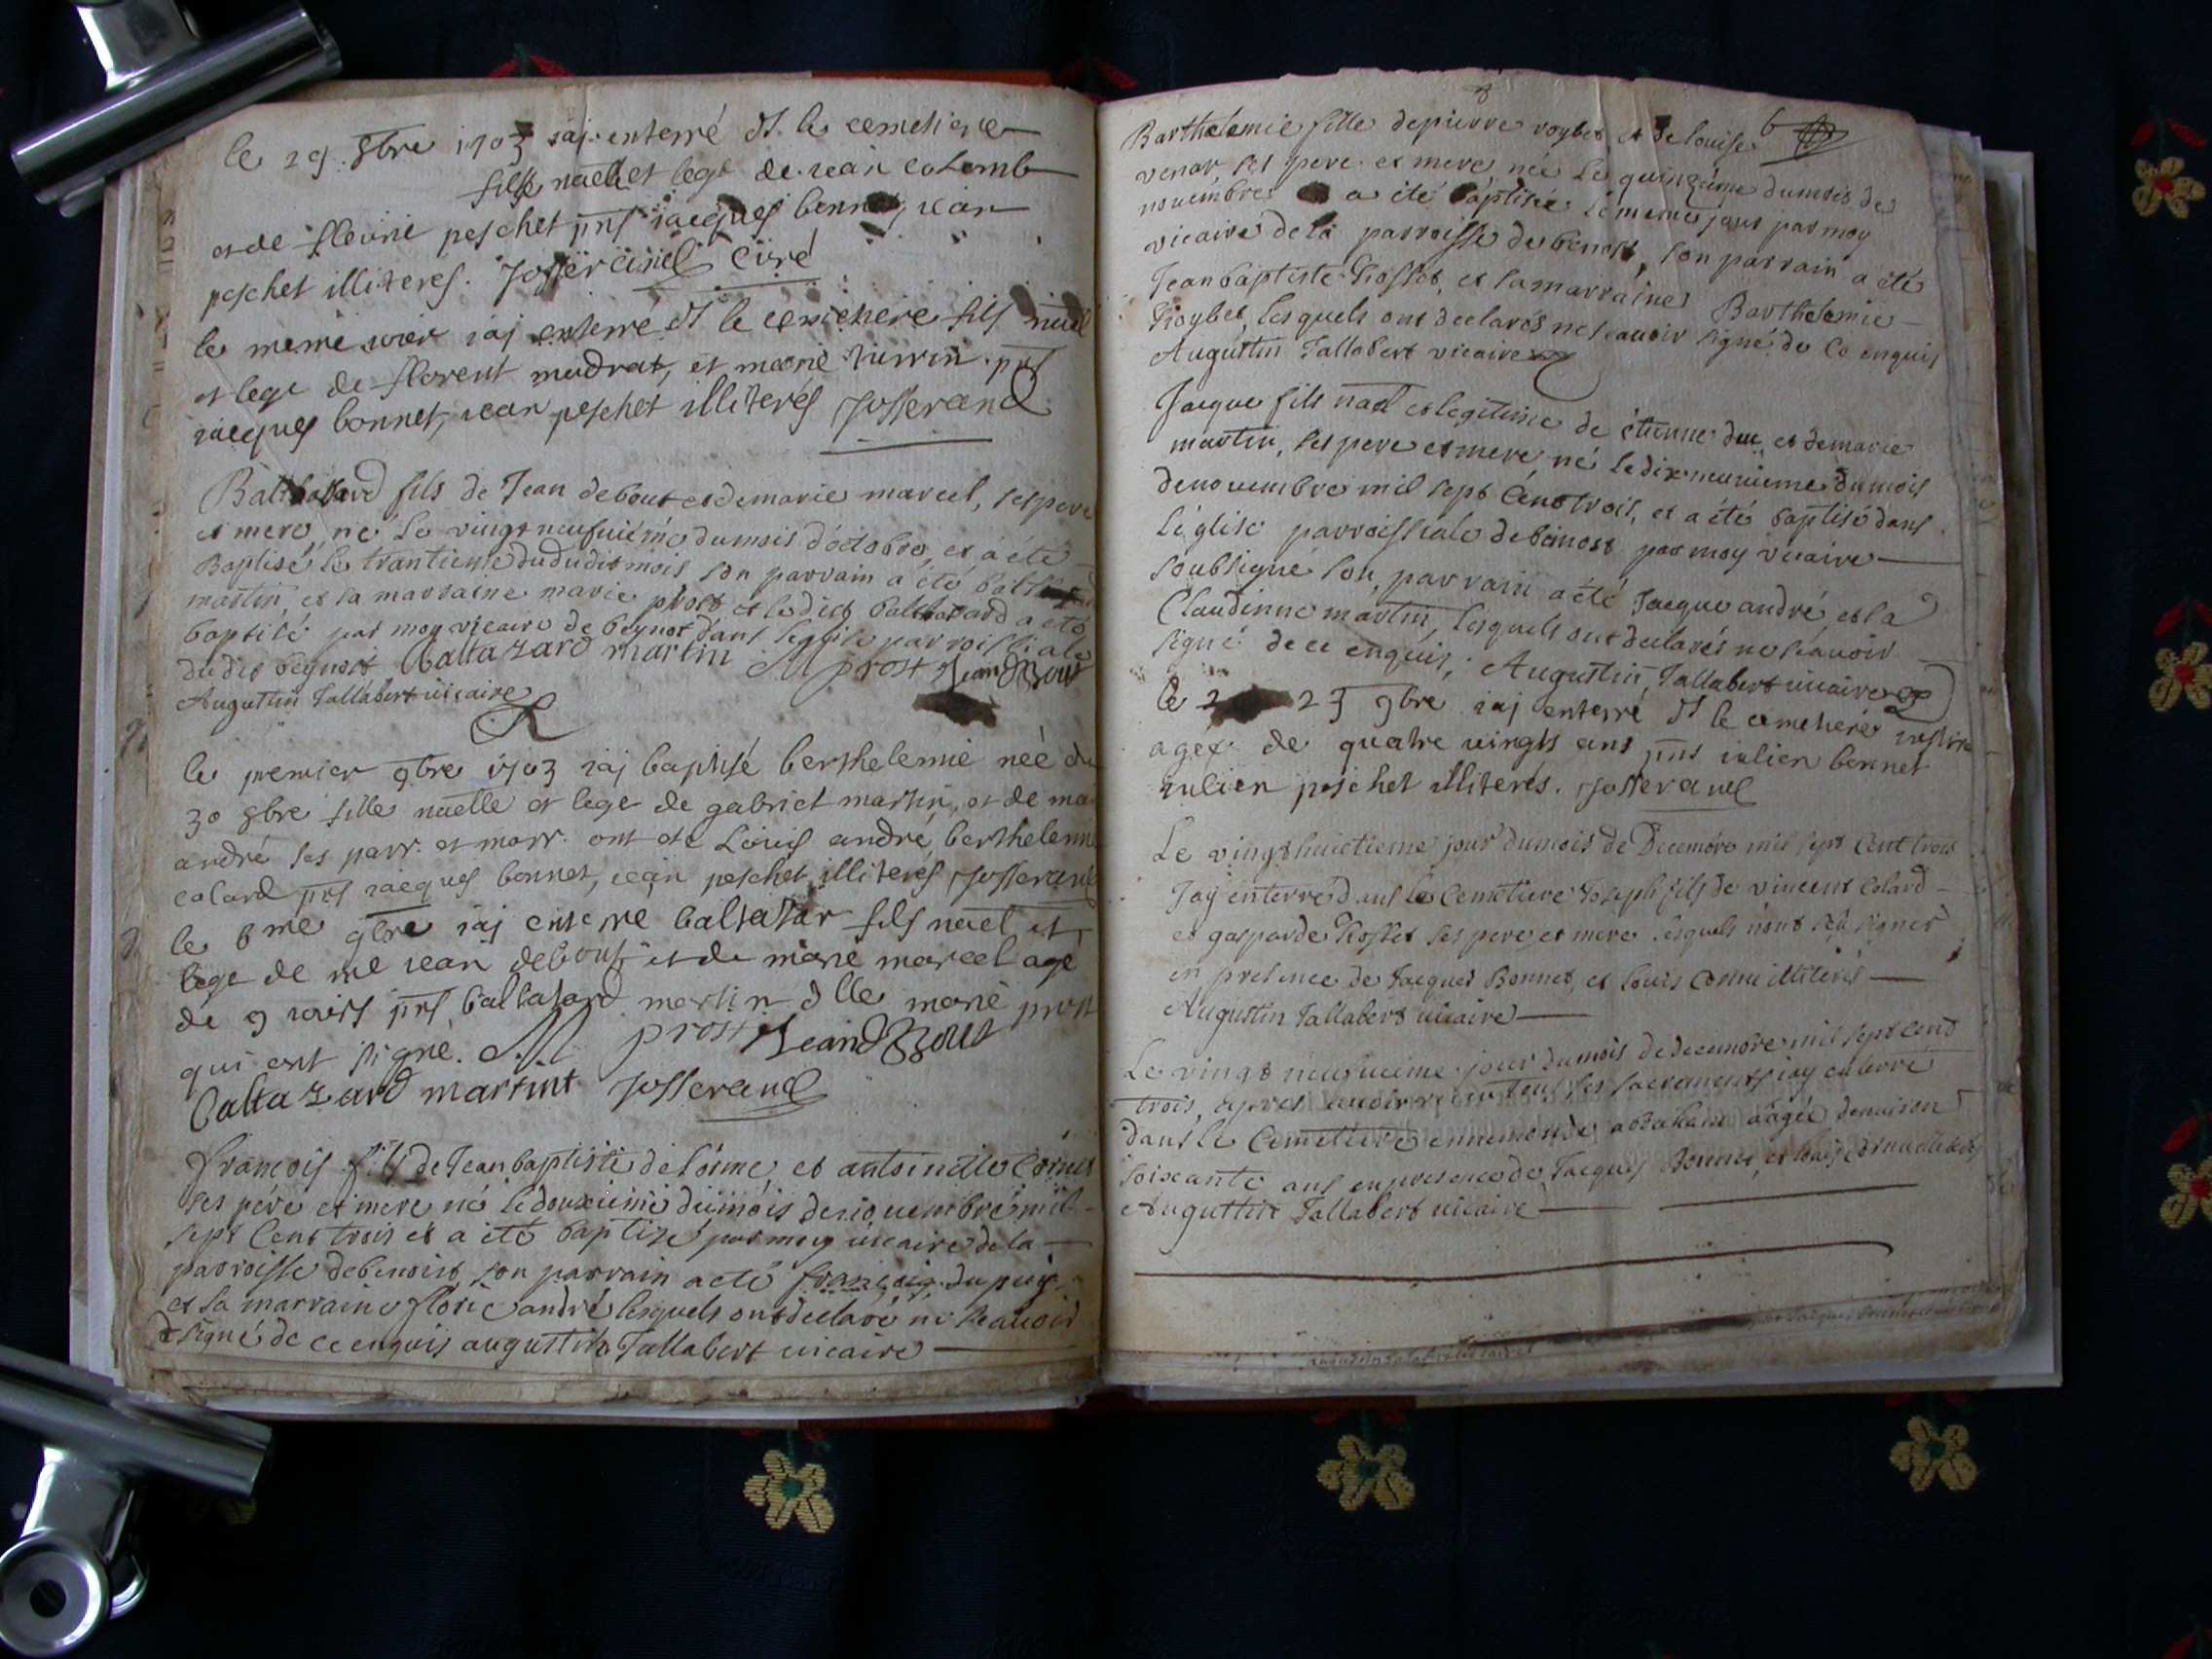 le 29. 8bre 1703 iaj enterré ds le cemetiere
fille naelle et lege de iean colomb
et de fleurie peschet pns iacques bonnet, iean
peschet illiteres. Josserand Curé
le meme iour iaj enterre ds le cemetiere fils nael
et lege de florent mudrat, et marie pns
iacques bonnet, iean peschet illiterés Josserand
Balthazard fils de Jean debout et de marie marcel, ses pere
et mere, né le vingt neufuiéme du mois d'octobre, et a été
Baptisé le trantieme du dudit mois son parrain a été
martin, et sa marraine marie prost et ledict balthazard a été
baptisé par moy vicaire de beynost dans l'eglise parroissiale
dudit beynost Baltazard martin M prost Jean
Augustin Tallabert vicaire
le premier 9bre 1703 iaj baptisé berthelemie née du
30 8bre fille naelle et lege de gabriel martin, et de
andré ses parr. et marr. ont eté Louis andré, berthelemie
colard pns iacques bonnet, iean peschet illiterés Josserand
le 8me 9bre iaj enterré baltasar fils nael et
lege de me iean debout et de marie marcel agé
de 9 iours pns baltasard martin dlle marie prost
qui ont signé. M prost Jean
Baltazard martint Josserand
françois fils de Jean baptiste delorme, et antoinette
ses pére et mere né le douxieme du mois de nouembre mil
sept Cent trois et a été baptizé par moy vicaire de la
parroisse de benost, son parrain a eté françois dupuy
et sa marraine florie andré lesquels ont declaré ne scauoir
signé de ce enquis augustin Tallabert vicaire
6
Barthelemie fille de pierre roybet et de louise
venar, ses pere et mere, née le quinziéme du mois de
nouembre a été baptisée le meme jour par moy
vicaire de la parroisse de benost, son parrain a été
Jean baptiste Rosset, et sa marraine Barthelemie
Roybet, lesquels ont declarés ne scauoir signé de ce enquis
Augustin Tallabert vicaire
Jacque fils nael et legitime de étienne duc et de marie
martin, ses pere et mere, né le dix neuuieme du mois
de nouembre mil sept Cent trois, et a été baptisé dans
l'église parroissiale de beinost par moy vicaire
soubsigné son parrain a été Jacque andré, et la
Claudinne martin, lesquels ont declarés ne scauoir
signé de ce enquis, Augustin Tallabert vicaire
le 23 9bre iaj enterré ds le cemetiere
agee de quatre vingts ans pns iulien bonnet
iulien peschet illiterés. Josserand
Le vingt huictieme jour du mois de Decembre mil sept Cent trois
Jay enterré dans le Cemetiere Joseph fils de vincent Colard
et gasparde Rosset ses pere et mere lesquels n'ont sçu signer
en presence de Jacques Bonnet, et louis Cornu illiterés
Augustin Tallabert vicaire
Le vingt neufuieme jour du mois de decembre mil sept Cent
trois, apres auoir receu tous les sacrements jay enterré
dans le Cemetiere ennemonde aagée denuiron
soixante ans en presence de Jacques Bonnet, et louis Cornu illiterés
Augustin Tallabert vicaire